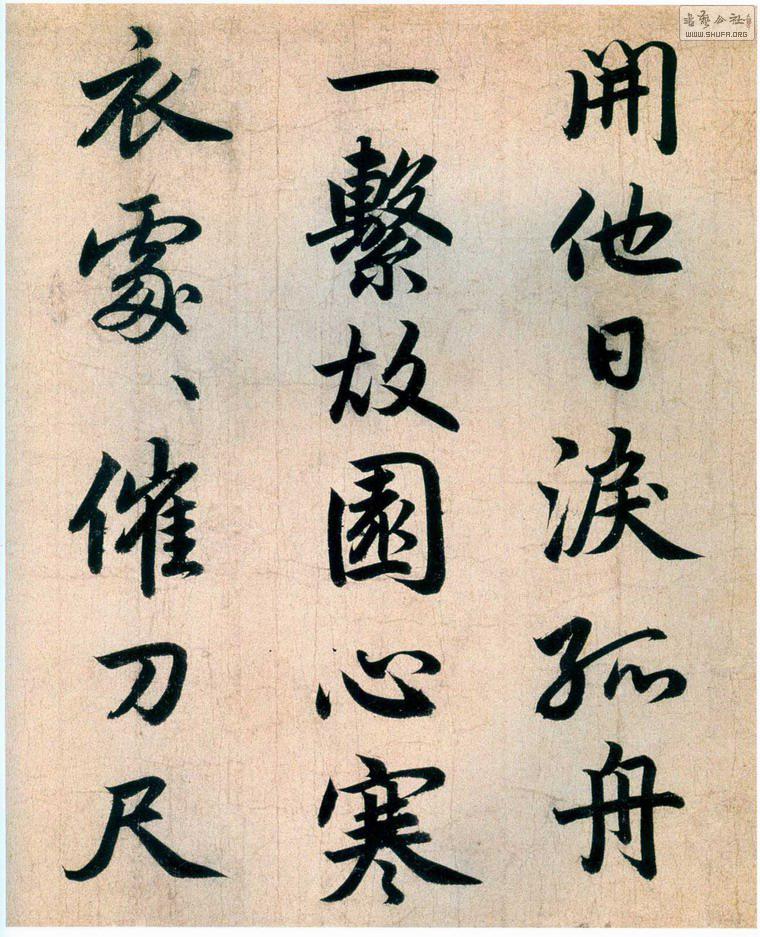 開他日淚孤舟
一繫故園心寒
衣處、催刀尺
WWW.SHUFA.ORG